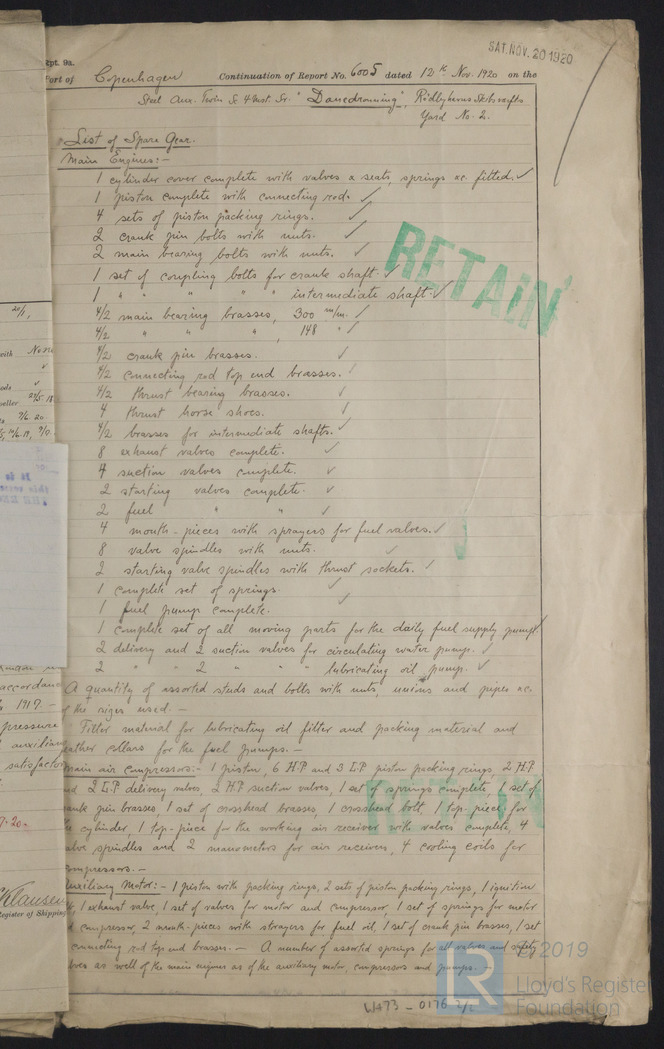 SAT. NOV. 20 1920
Rpt. 9a.
Port of Copenhagen Continuation of Report No. 6005 dated 12th Nov. 1920 on the
Steel Aux. Twin Sc 4 Mast. Sr. "Danedronning",
Yard No. 2.
List of Spare Gear.
Main Engines:-
1 cylinder cover complete with valves & seats, springs &c. fitted. ✓
1 piston complete with connecting rod. ✓
4 sets of piston packing rings. ✓
2 crank pin bolts with nuts. ✓
2 main bearing bolts with nuts. ✓
1 set of coupling bolts for crank shaft. ✓
1 " " " " " intermediate shaft. ✓
RETAIN
4/2 main bearing brasses, 300 m/m. ✓
4/2 " " " , 148 " ✓
4/2 crank pin brasses. ✓
4/2 connecting rod top end brasses. ✓
4/2 thrust bearing brasses. ✓
4 thrust horse shoes. ✓
4/2 brasses for intermediate shafts. ✓
8 exhaust valves complete. ✓
4 suction valves complete. ✓
2 starting valves complete. ✓
2 fuel " " ✓
4 mouth-pieces with sprayers for fuel valves. ✓
8 valve spindles with nuts. ✓
2 starting valve spindles with thrust sockets. ✓
1 complete set of springs. ✓
1 fuel pump complete. ✓
1 complete set of all moving parts for the daily fuel supply pump ✓
2 delivery and 2 suction valves for circulating water pump. ✓
2 " " 2 " " " lubricating oil pump. ✓
A quantity of assorted studs and bolts with nuts, unions and pipes &c.
of the sizes used. -
Filter material for lubricating oil filter and packing material and
leather collars for the fuel pumps. -
Main air compressors:- 1 piston, 6 H.P and 3 L.P piston packing rings, 2 H.P
and 2 L.P delivery valves, 2 H.P suction valves, 1 set of springs complete, 1 set of
crank pin brasses, 1 set of crosshead brasses, 1 crosshead bolt, 1 top-piece for
the cylinder, 1 top-piece for the working air receiver with valves complete, 4
valve spindles and 2 manometers for air receivers, 4 cooling coils for
compressors. -
RETAIN
Auxiliary Motor:- 1 piston with packing rings, 2 sets of piston packing rings, 1 ignition
1 exhaust valve, 1 set of valves for motor and compressor, 1 set of springs for motor
compressor, 2 mouth-pieces with sprayers for fuel oil, 1 set of crank pin brasses, 1 set
connecting rod top end brasses. - A number of assorted springs for all valves and safety
valves as well of the main engines as of the auxiliary motor, compressors and pumps. -
2019
Lloyd's Register
Foundation
W473 - 0176 2/2
20/1,
with None
29/5 18
7/6. 20
accordance
1917 -
pressure
auxiliary
satisfactory
7.20.
Klausen
Register of Shipping